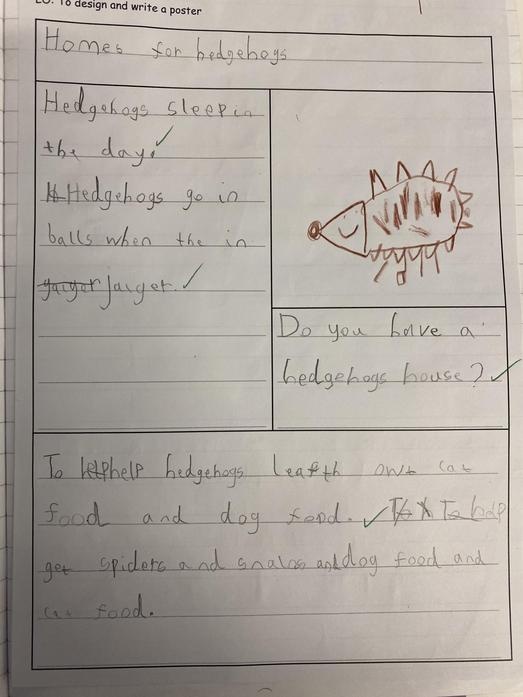 LO: To design and write a poster
Homes for hedgehogs
Hedgehogs sleep in
the day.
Hedgehogs go in
balls when the in
jarger.
Do you have a
hedgehogs house?
To help hedgehogs leafth owt cat
food and dog food. To help
get spiders and snalas and dog food and
cat food.